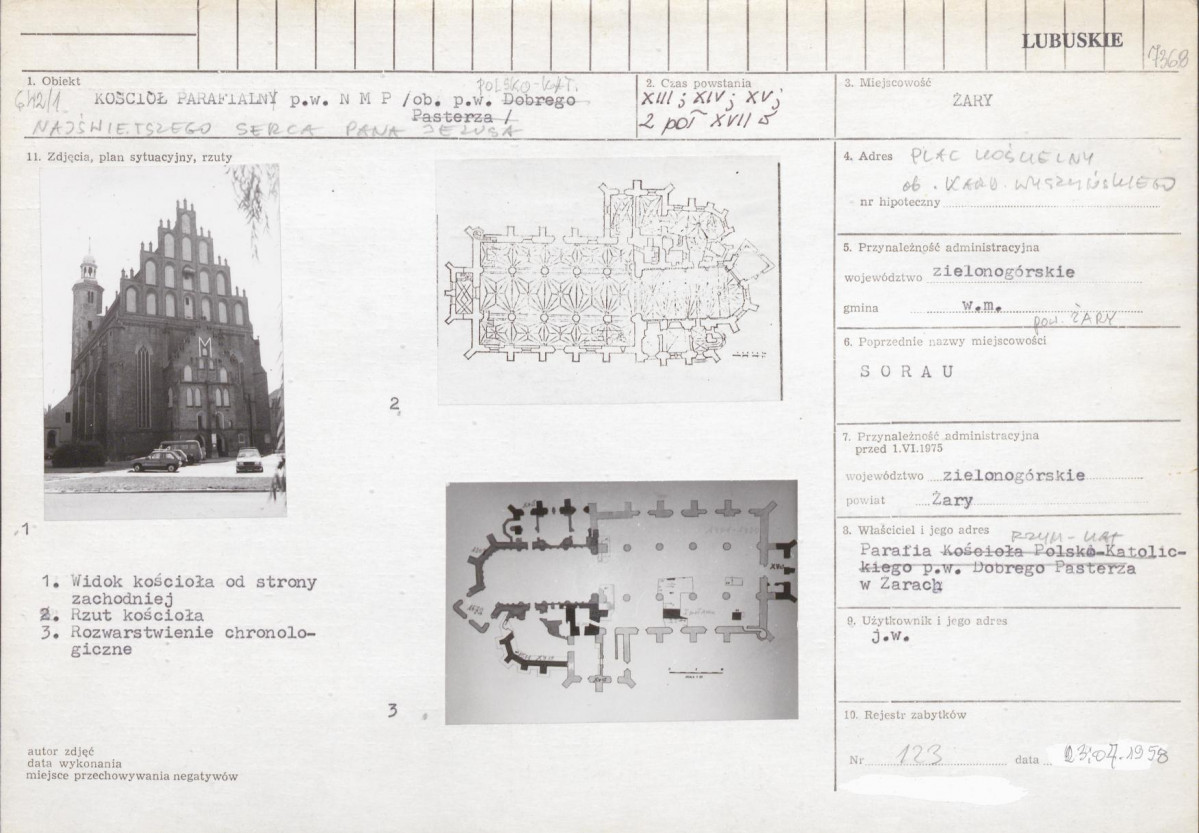 LUBUSKIE
7368
1. Obiekt
642/1
POLSKO-KAT.
KOŚCIÓŁ PARAFIALNY p.w. N M P /ob. p.w. Dobrego
Pasterza /
NAJŚWIĘTSZEGO SERCA PANA JEZUSA
2. Czas powstania
XIII; XIV; XV;
2 poł XVII
3. Miejscowość
ŻARY
11. Zdjęcia, plan sytuacyjny, rzuty
1
2
3
1. Widok kościoła od strony
zachodniej
2. Rzut kościoła
3. Rozwarstwienie chronolo-
giczne
autor zdjęć
data wykonania
miejsce przechowywania negatywów
4. Adres PLAC KOŚCIELNY
ob. KARD. WYSZYŃSKIEGO
nr hipoteczny
5. Przynależność administracyjna
województwo zielonogórskie
gmina w.m.
pow. ŻARY
6. Poprzednie nazwy miejscowości
S O R A U
7. Przynależność administracyjna
przed 1.VI.1975
województwo zielonogórskie
powiat Żary
8. Właściciel i jego adres
RZYM-KAT
Parafia Kościoła Polsko-Katolic-
kiego p.w. Dobrego Pasterza
w Żarach
9. Użytkownik i jego adres
j.w.
10. Rejestr zabytków
Nr 123 data 23.04.1958